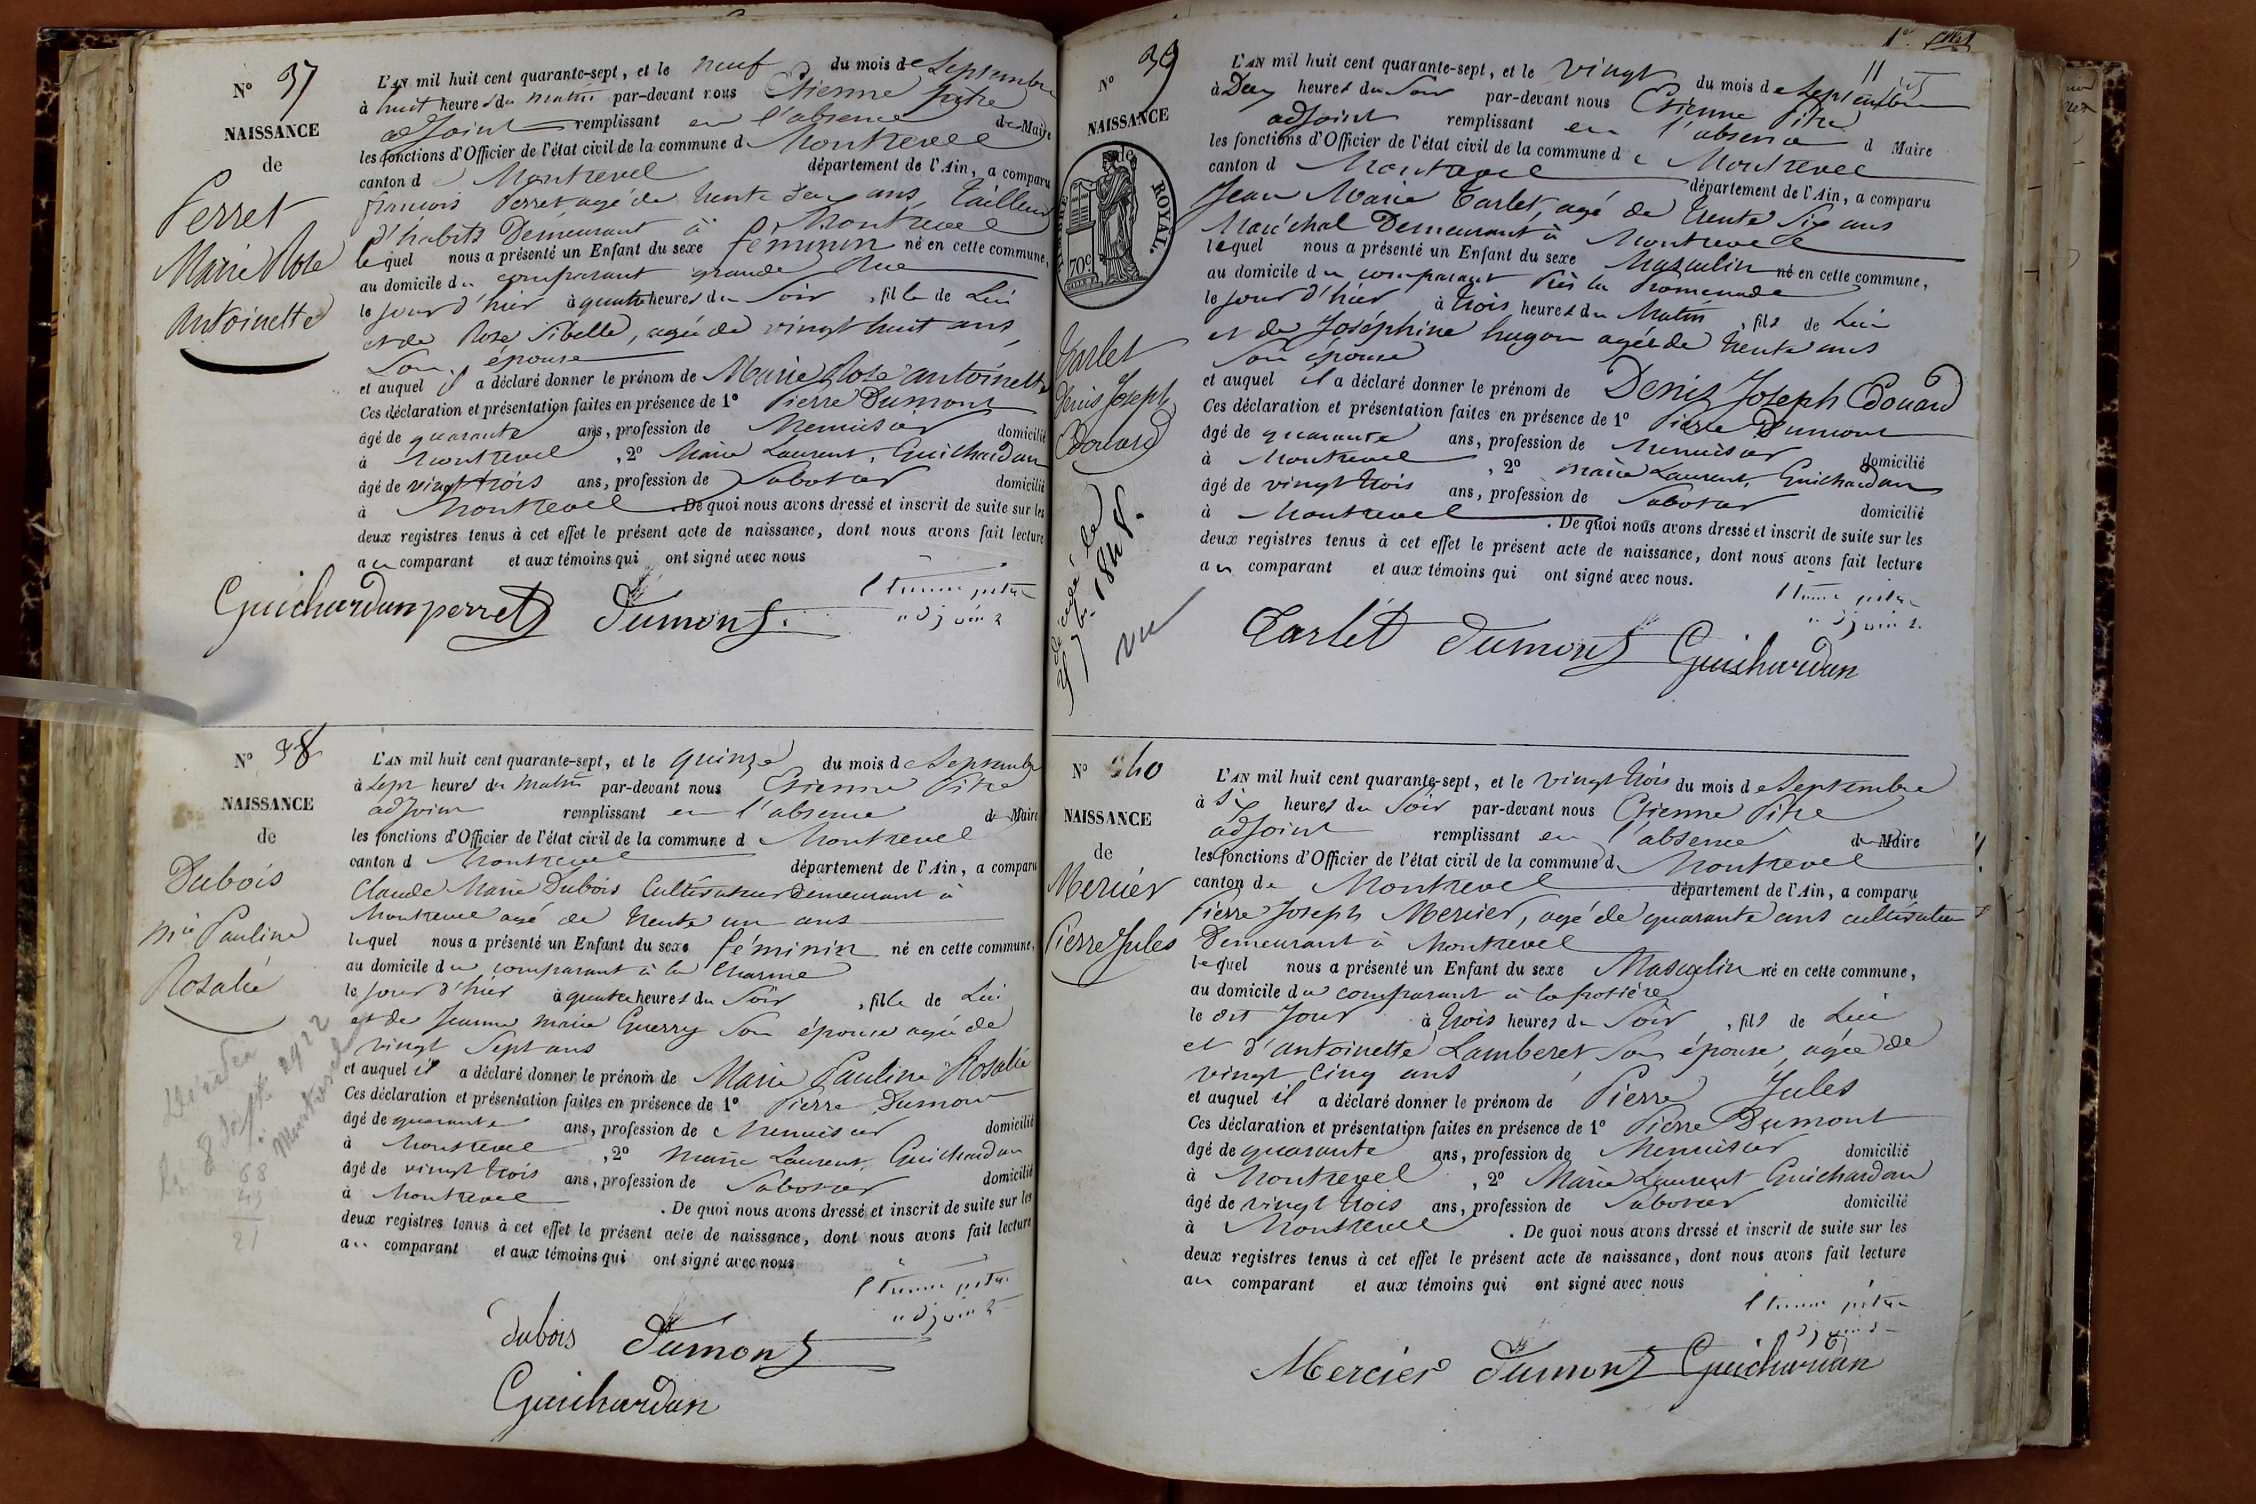 N° 37
NAISSANCE
de
Perret
Marie Rose
Antoinette
L'AN mil huit cent quarante-sept, et le neuf du mois de Septembre
à huit heures du matin par-devant nous Etienne Pitre
adjoint remplissant en l'absence du Maire
les fonctions d'Officier de l'état civil de la commune d Montrevel
canton d Montrevel département de l'Ain, a comparu
françois Perret agé de trente deux ans, Tailleur
d'habits Demeurant à Montrevel
lequel nous a présenté un Enfant du sexe féminin né en cette commune,
au domicile du comparant grande Rue
le jour d'hier à quatre heures du Soir, fille de Lui
et de Rose Sibelle, agée de vingt huit ans,
Son épouse
et auquel il a déclaré donner le prénom de Marie Rose antoinette
Ces déclaration et présentation faites en présence de 1° Pierre Dumont
âgé de quarante ans, profession de Menuisier domicilié
à Montrevel, 2° Marie Laurent, Guichardan
âgé de vingt trois ans, profession de Sabotier domicilié
à Montrevel. De quoi nous avons dressé et inscrit de suite sur les
deux registres tenus à cet effet le présent acte de naissance, dont nous avons fait lecture
au comparant et aux témoins qui ont signé avec nous
Etienne pitre
adjoint
Guichardan perret Dumont
N° 38
NAISSANCE
de
Dubois
Mie Pauline
Rosalie
décédée
le 8 Sept. 1922
Montrevel
68
21
L'AN mil huit cent quarante-sept, et le quinze du mois de Septembre
à Sept heures du matin par-devant nous Etienne Pitre
adjoint remplissant en l'absence du Maire
les fonctions d'Officier de l'état civil de la commune d Montrevel
canton d Montrevel département de l'Ain, a comparu
Claude Marie Dubois Cultivateur Demeurant à
Montrevel agé de trente un ans
lequel nous a présenté un Enfant du sexe féminin né en cette commune,
au domicile du comparant à la Charme
le jour d'hier à quatre heures du Soir, fille de Lui
et de Jeanne Marie Guerry Son épouse agée de
vingt Sept ans
et auquel il a déclaré donner le prénom de Marie Pauline Rosalie
Ces déclaration et présentation faites en présence de 1° Pierre Dumont
âgé de quarante ans, profession de Menuisier domicilié
à Montrevel, 2° Marie Laurent, Guichardan
âgé de vingt trois ans, profession de Sabotier domicilié
à Montrevel. De quoi nous avons dressé et inscrit de suite sur les
deux registres tenus à cet effet le présent acte de naissance, dont nous avons fait lecture
au comparant et aux témoins qui ont signé avec nous
Etienne pitre
adjoint
Dubois Dumont
Guichardan
11
N° 39
NAISSANCE
ROYAL.
70c
Tarlet
Denis Joseph
Edouard
décédé le
1848.
vu
L'AN mil huit cent quarante-sept, et le vingt du mois de Septembre
à Deux heures du Soir par-devant nous Etienne Pitre
adjoint remplissant en l'absence d Maire
les fonctions d'Officier de l'état civil de la commune de Montrevel
canton d Montrevel département de l'Ain, a comparu
Jean Marie Tarlet, agé de trente Six ans
Maréchal Demeurant à Montrevel
lequel nous a présenté un Enfant du sexe Masculin né en cette commune,
au domicile du comparant Près la Promenade
le jour d'hier à trois heures du Matin, fils de Lui
et de Joséphine hugon agée de trente ans
Son épouse
et auquel il a déclaré donner le prénom de Denis Joseph Edouard
Ces déclaration et présentation faites en présence de 1° Pierre Dumont
âgé de quarante ans, profession de Menuisier domicilié
à Montrevel, 2° Marie Laurent, Guichardan
âgé de vingt trois ans, profession de Sabotier domicilié
à Montrevel. De quoi nous avons dressé et inscrit de suite sur les
deux registres tenus à cet effet le présent acte de naissance, dont nous avons fait lecture
au comparant et aux témoins qui ont signé avec nous.
Etienne pitre
adjoint
Tarlet Dumont Guichardan
N° 40
NAISSANCE
de
Mercier
Pierre Jules
L'AN mil huit cent quarante-sept, et le vingt trois du mois de Septembre
à Six heures du Soir par-devant nous Etienne Pitre
adjoint remplissant en l'absence du Maire
les fonctions d'Officier de l'état civil de la commune d Montrevel
canton de Montrevel département de l'Ain, a comparu
Pierre Joseph Mercier, agé de quarante ans cultivateur
Demeurant à Montrevel
lequel nous a présenté un Enfant du sexe Masculin né en cette commune,
au domicile du comparant à la
le dit Jour à trois heures du Soir, fils de Lui
et d'antoinette Lamberet Son épouse, agée de
vingt Cinq ans
et auquel il a déclaré donner le prénom de Pierre Jules
Ces déclaration et présentation faites en présence de 1° Pierre Dumont
âgé de quarante ans, profession de Menuisier domicilié
à Montrevel, 2° Marie Laurent Guichardan
âgé de vingt trois ans, profession de Sabotier domicilié
à Montrevel. De quoi nous avons dressé et inscrit de suite sur les
deux registres tenus à cet effet le présent acte de naissance, dont nous avons fait lecture
au comparant et aux témoins qui ont signé avec nous
Etienne pitre
adjoint
Mercier Dumont Guichardan